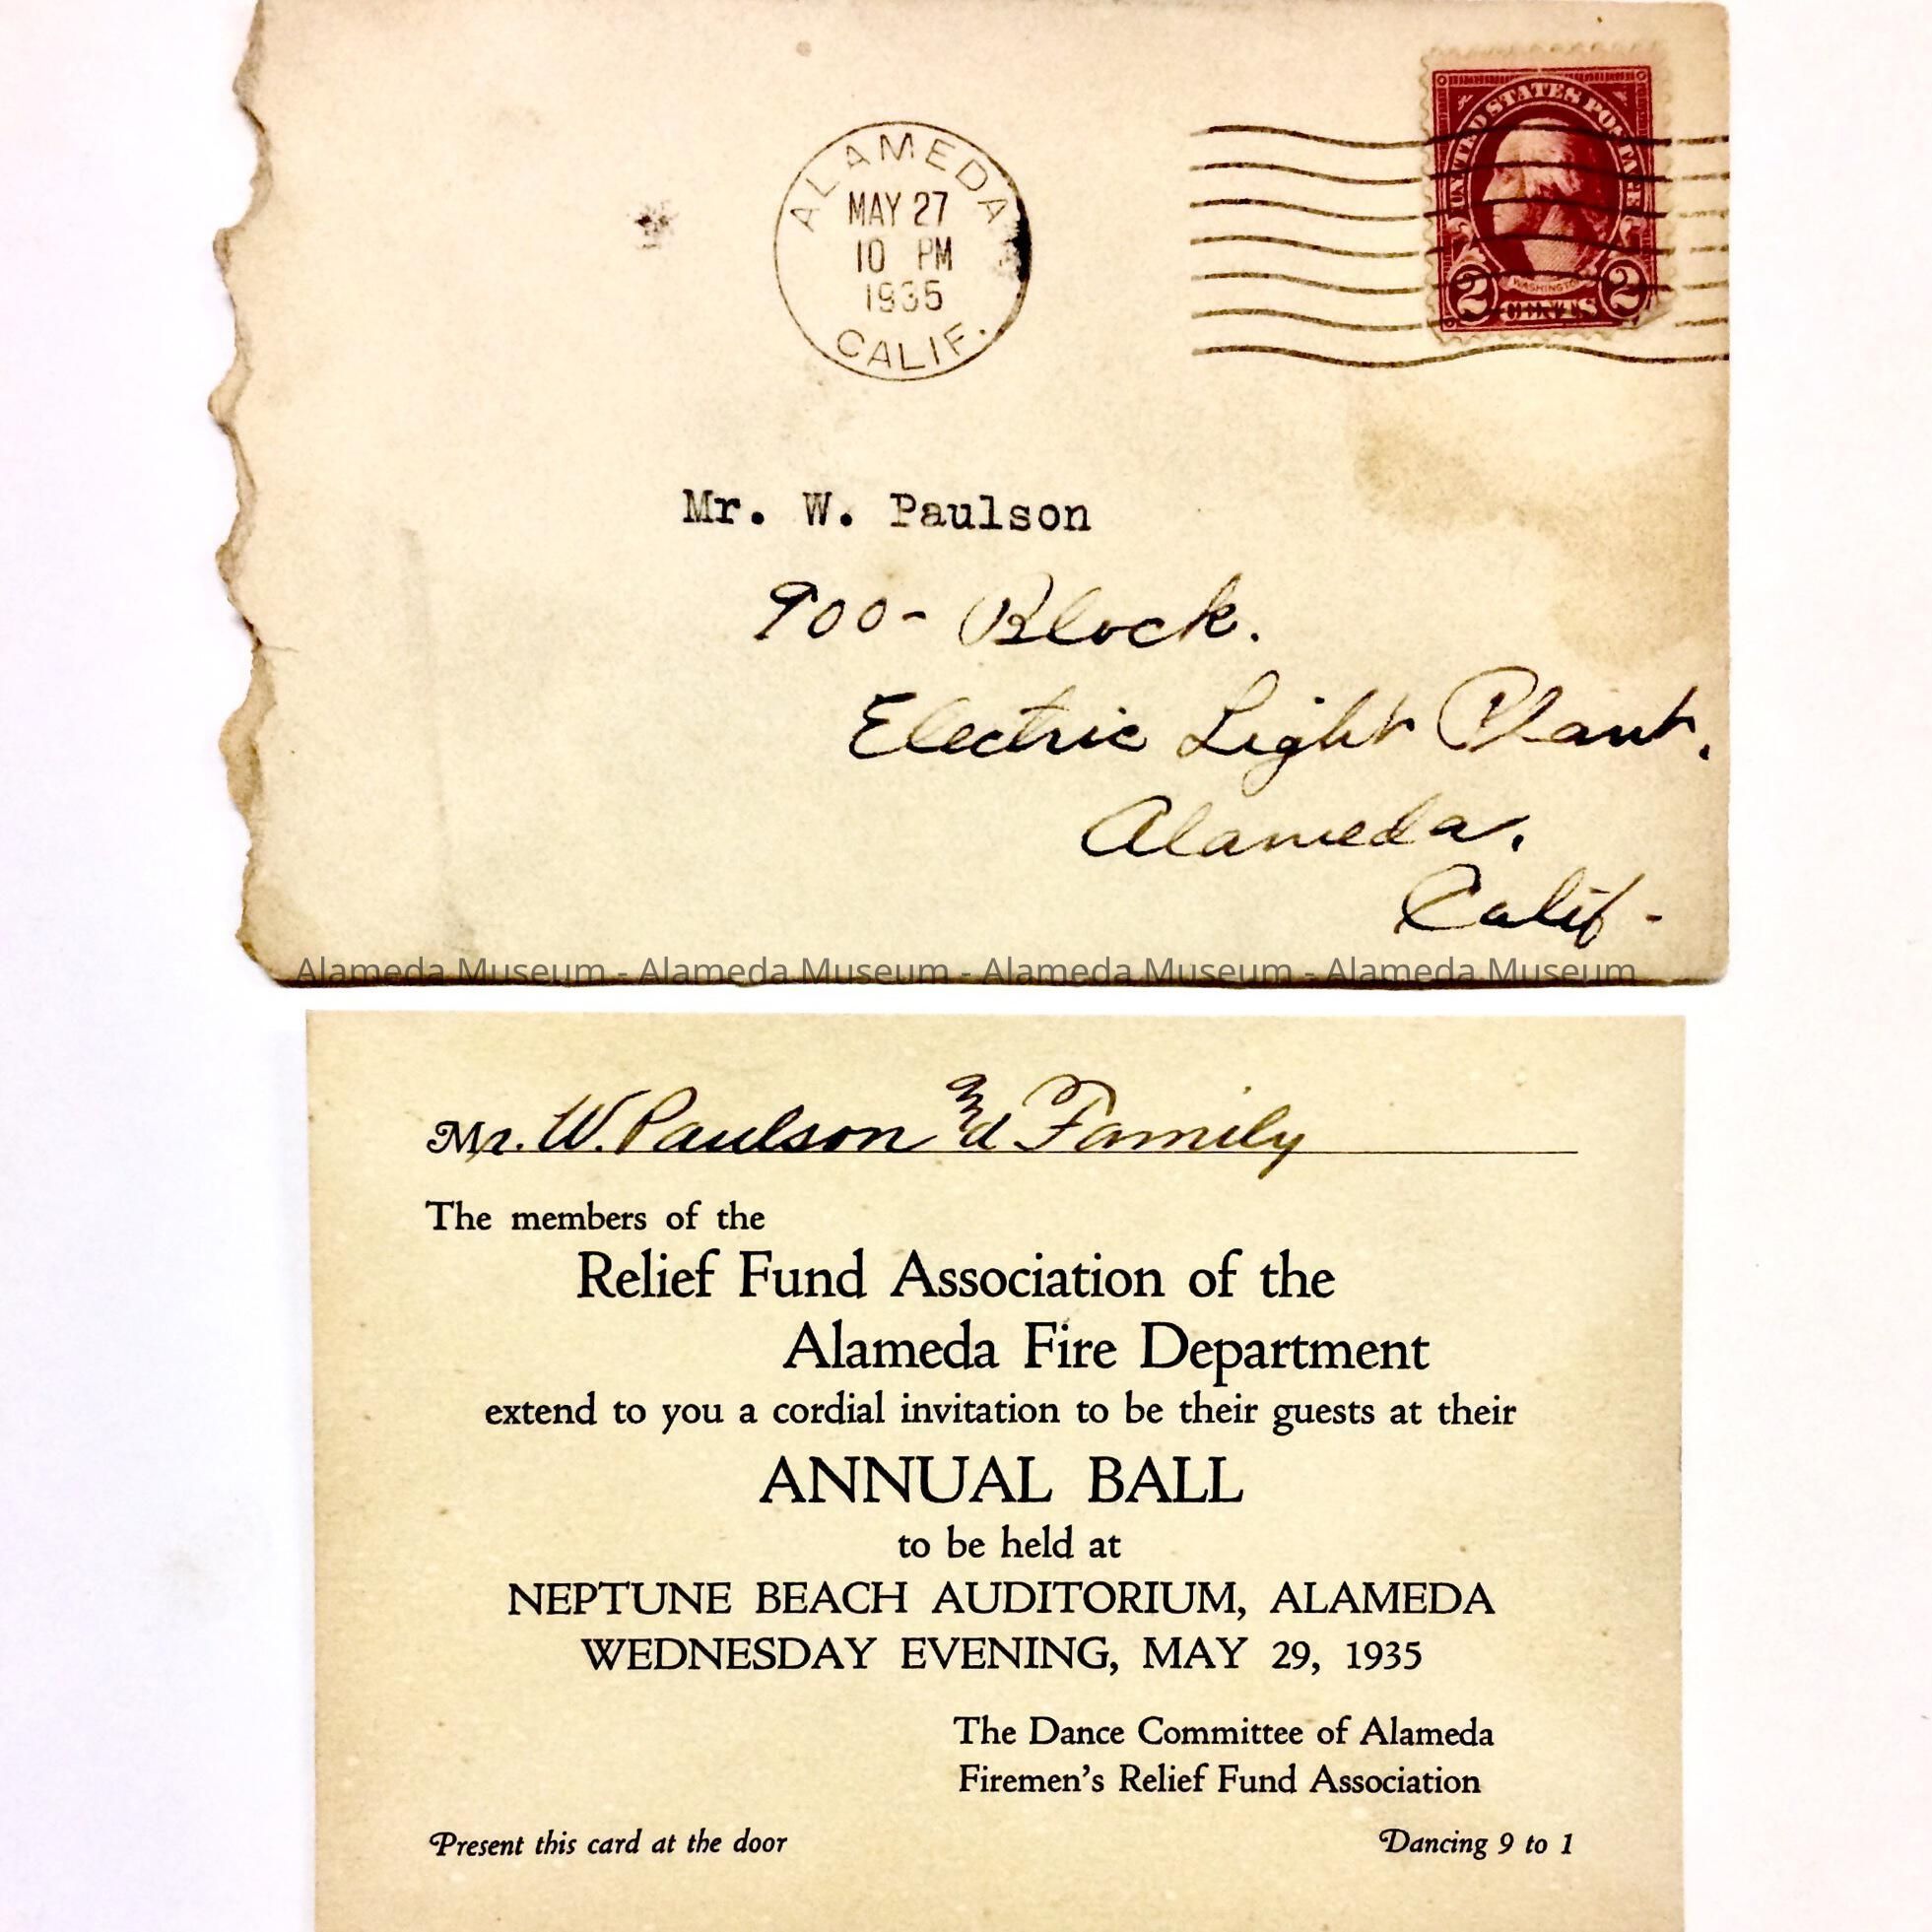 ALAMEDA
MAY 27
10 PM
1935
CALIF.
UNITED STATES POSTAGE
WASHINGTON
2 CENTS 2
Mr. W. Paulson
900- Block.
Electric Light Plant.
Alameda.
Calif-
Alameda Museum - Alameda Museum - Alameda Museum - Alameda Museum
Mr. W. Paulson and Family
The members of the
Relief Fund Association of the
Alameda Fire Department
extend to you a cordial invitation to be their guests at their
ANNUAL BALL
to be held at
NEPTUNE BEACH AUDITORIUM, ALAMEDA
WEDNESDAY EVENING, MAY 29, 1935
The Dance Committee of Alameda
Firemen's Relief Fund Association
Present this card at the door
Dancing 9 to 1